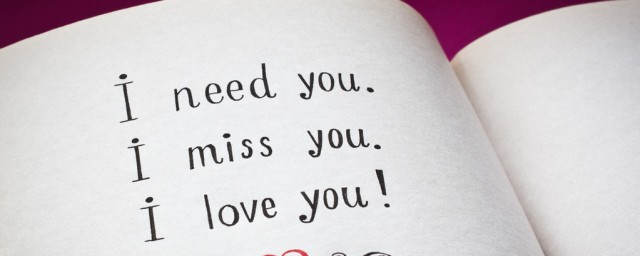 I need you.
I miss you.
I love you!